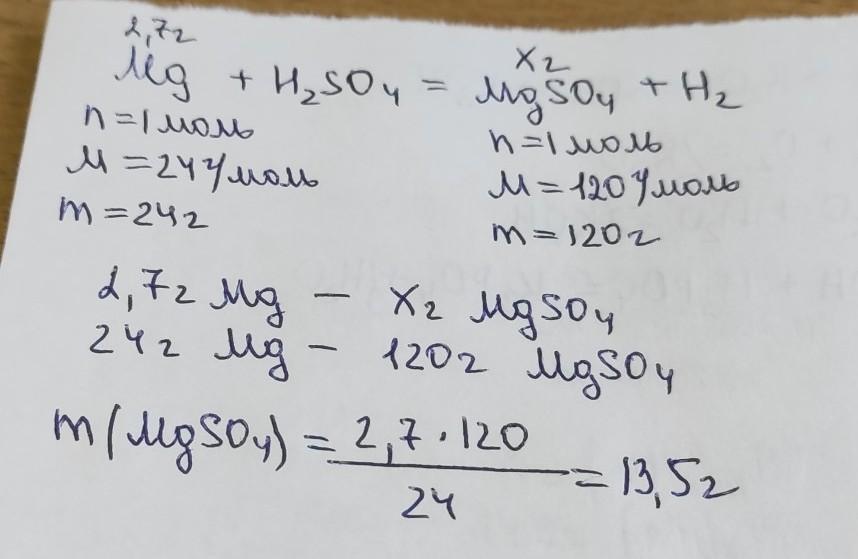 2,7г Xг
Mg + H₂SO₄ = MgSO₄ + H₂
n=1моль n=1моль
M=24г/моль M=120г/моль
m=24г m=120г
2,7г Mg – Xг MgSO₄
24г Mg – 120г MgSO₄
m(MgSO₄) = 2,7·120 / 24 = 13,5г